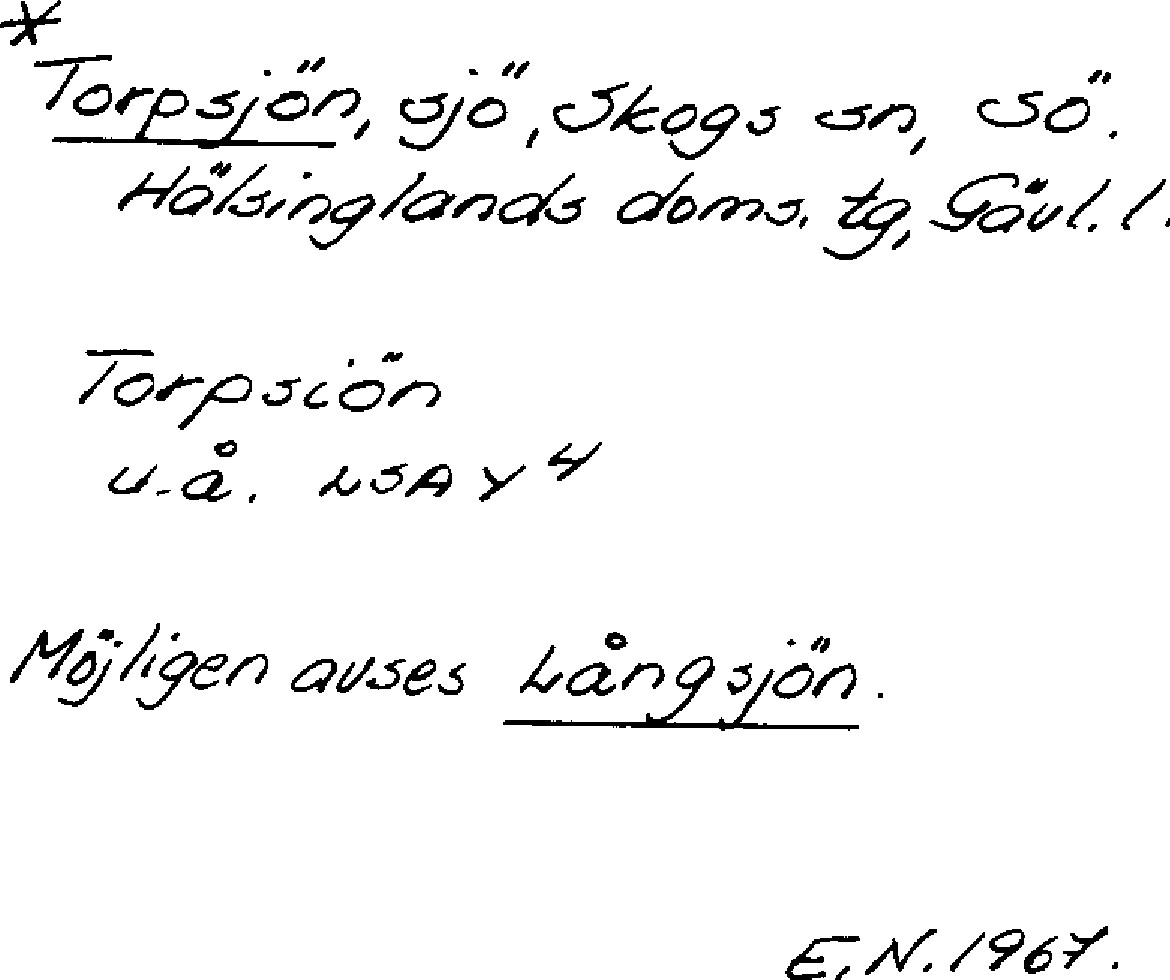 *
Torpsjön, sjö, Skogs sn, Sö.
Hälsinglands doms. tg, Gävl. l.
Torpsiön
u.å. LSA Y 4
Möjligen avses Långsjön.
E.N. 1967.